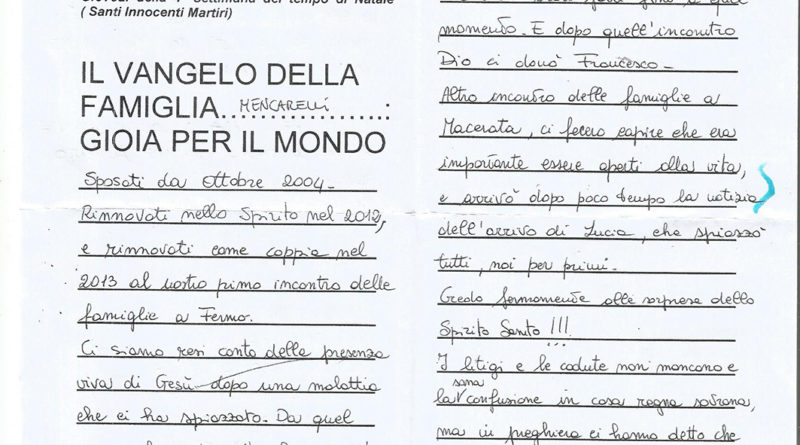 ( Santi Innocenti Martiri)
IL VANGELO DELLA
FAMIGLIA...MENCARELLI...:
GIOIA PER IL MONDO
Sposati da ottobre 2004-
Rinnovati nello Spirito nel 2012,
e rinnovati come coppia nel
2013 al nostro primo incontro delle
famiglie a Fermo.
Ci siamo resi conto della presenza
viva di Gesù dopo una malattia
che ci ha spiazzato. Da quel
momento. E dopo quell'incontro
Dio ci donò Francesco-
Altro incontro delle famiglie a
Macerata, ci fecero capire che era
importante essere aperti alla vita,
e arrivò dopo poco tempo la notizia
dell'arrivo di Lucia, che spiazzò
tutti, noi per primi.
Credo fermamente alle sorprese dello
Spirito Santo!!!
I litigi e le cadute non mancono e
la sana confusione in casa regna sovrana,
ma in preghiera ci hanno detto che